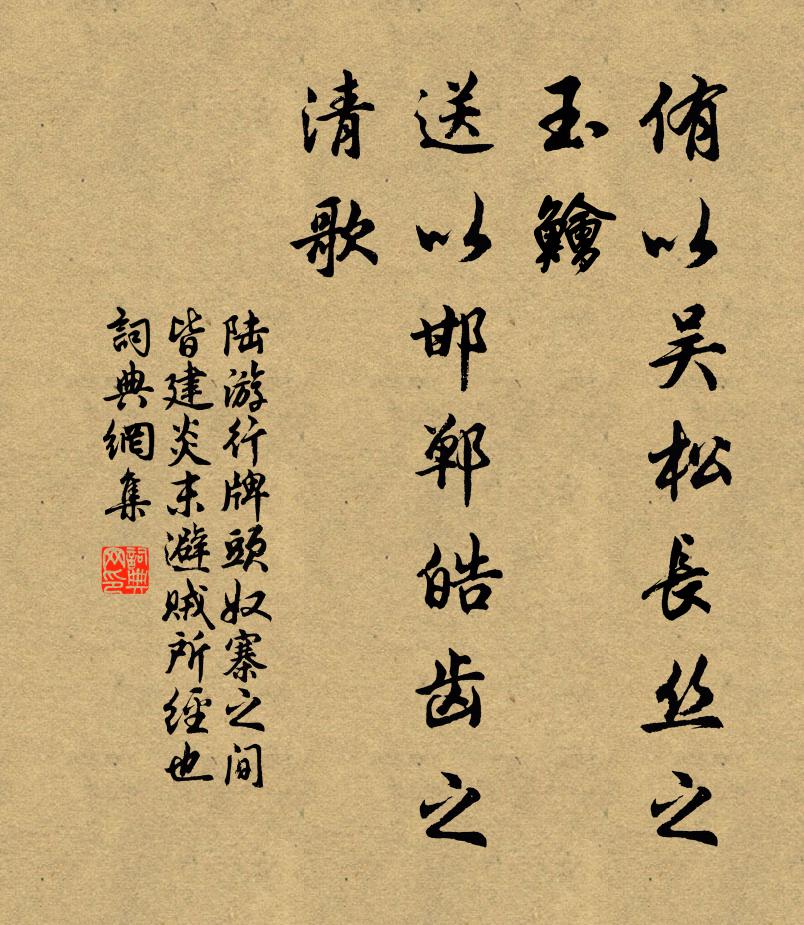 侑以吴松長丝之
玉鱠
送以邯郸皓齿之
清歌
陆游行牌頭奴寨之间
皆建炎末避贼所經也
詞典網集
詞典
网印